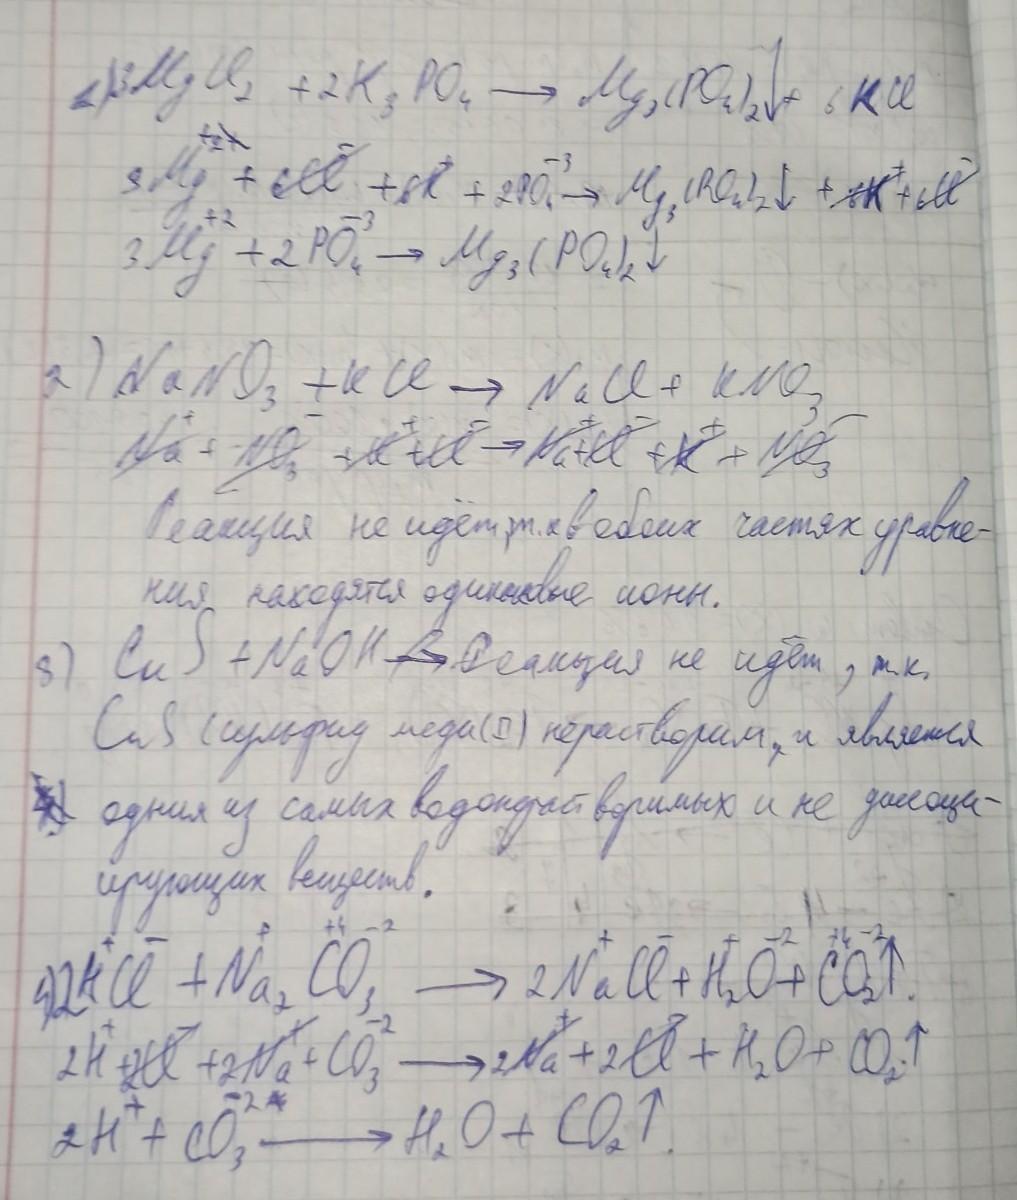 1) 3MgCl₂ + 2K₃PO₄ → Mg₃(PO₄)₂↓ + 6KCl
3Mg⁺² + 6Cl⁻ + 6K⁺ + 2PO₄⁻³ → Mg₃(PO₄)₂↓ + 6K⁺ + 6Cl⁻
3Mg⁺² + 2PO₄⁻³ → Mg₃(PO₄)₂↓
2) NaNO₃ + KCl → NaCl + KNO₃
Na⁺ + NO₃⁻ + K⁺ + Cl⁻ → Na⁺ + Cl⁻ + K⁺ + NO₃⁻
Реакция не идёт, т.к в обоих частях уравне-
ния находятся одинаковые ионы.
3) CuS + NaOH → Реакция не идёт, т.к.
CuS (сульфид меди(II) нерастворим, и является
одним из самых водонерастворимых и не диссоци-
ирующих веществ.
4) 2H⁺Cl⁻ + Na₂⁺C⁺⁴O₃⁻² → 2Na⁺Cl⁻ + H₂⁺O⁻² + C⁺⁴O₂⁻²↑.
2H⁺ + 2Cl⁻ + 2Na⁺ + CO₃⁻² → 2Na⁺ + 2Cl⁻ + H₂O + CO₂↑
2H⁺ + CO₃⁻² → H₂O + CO₂↑.